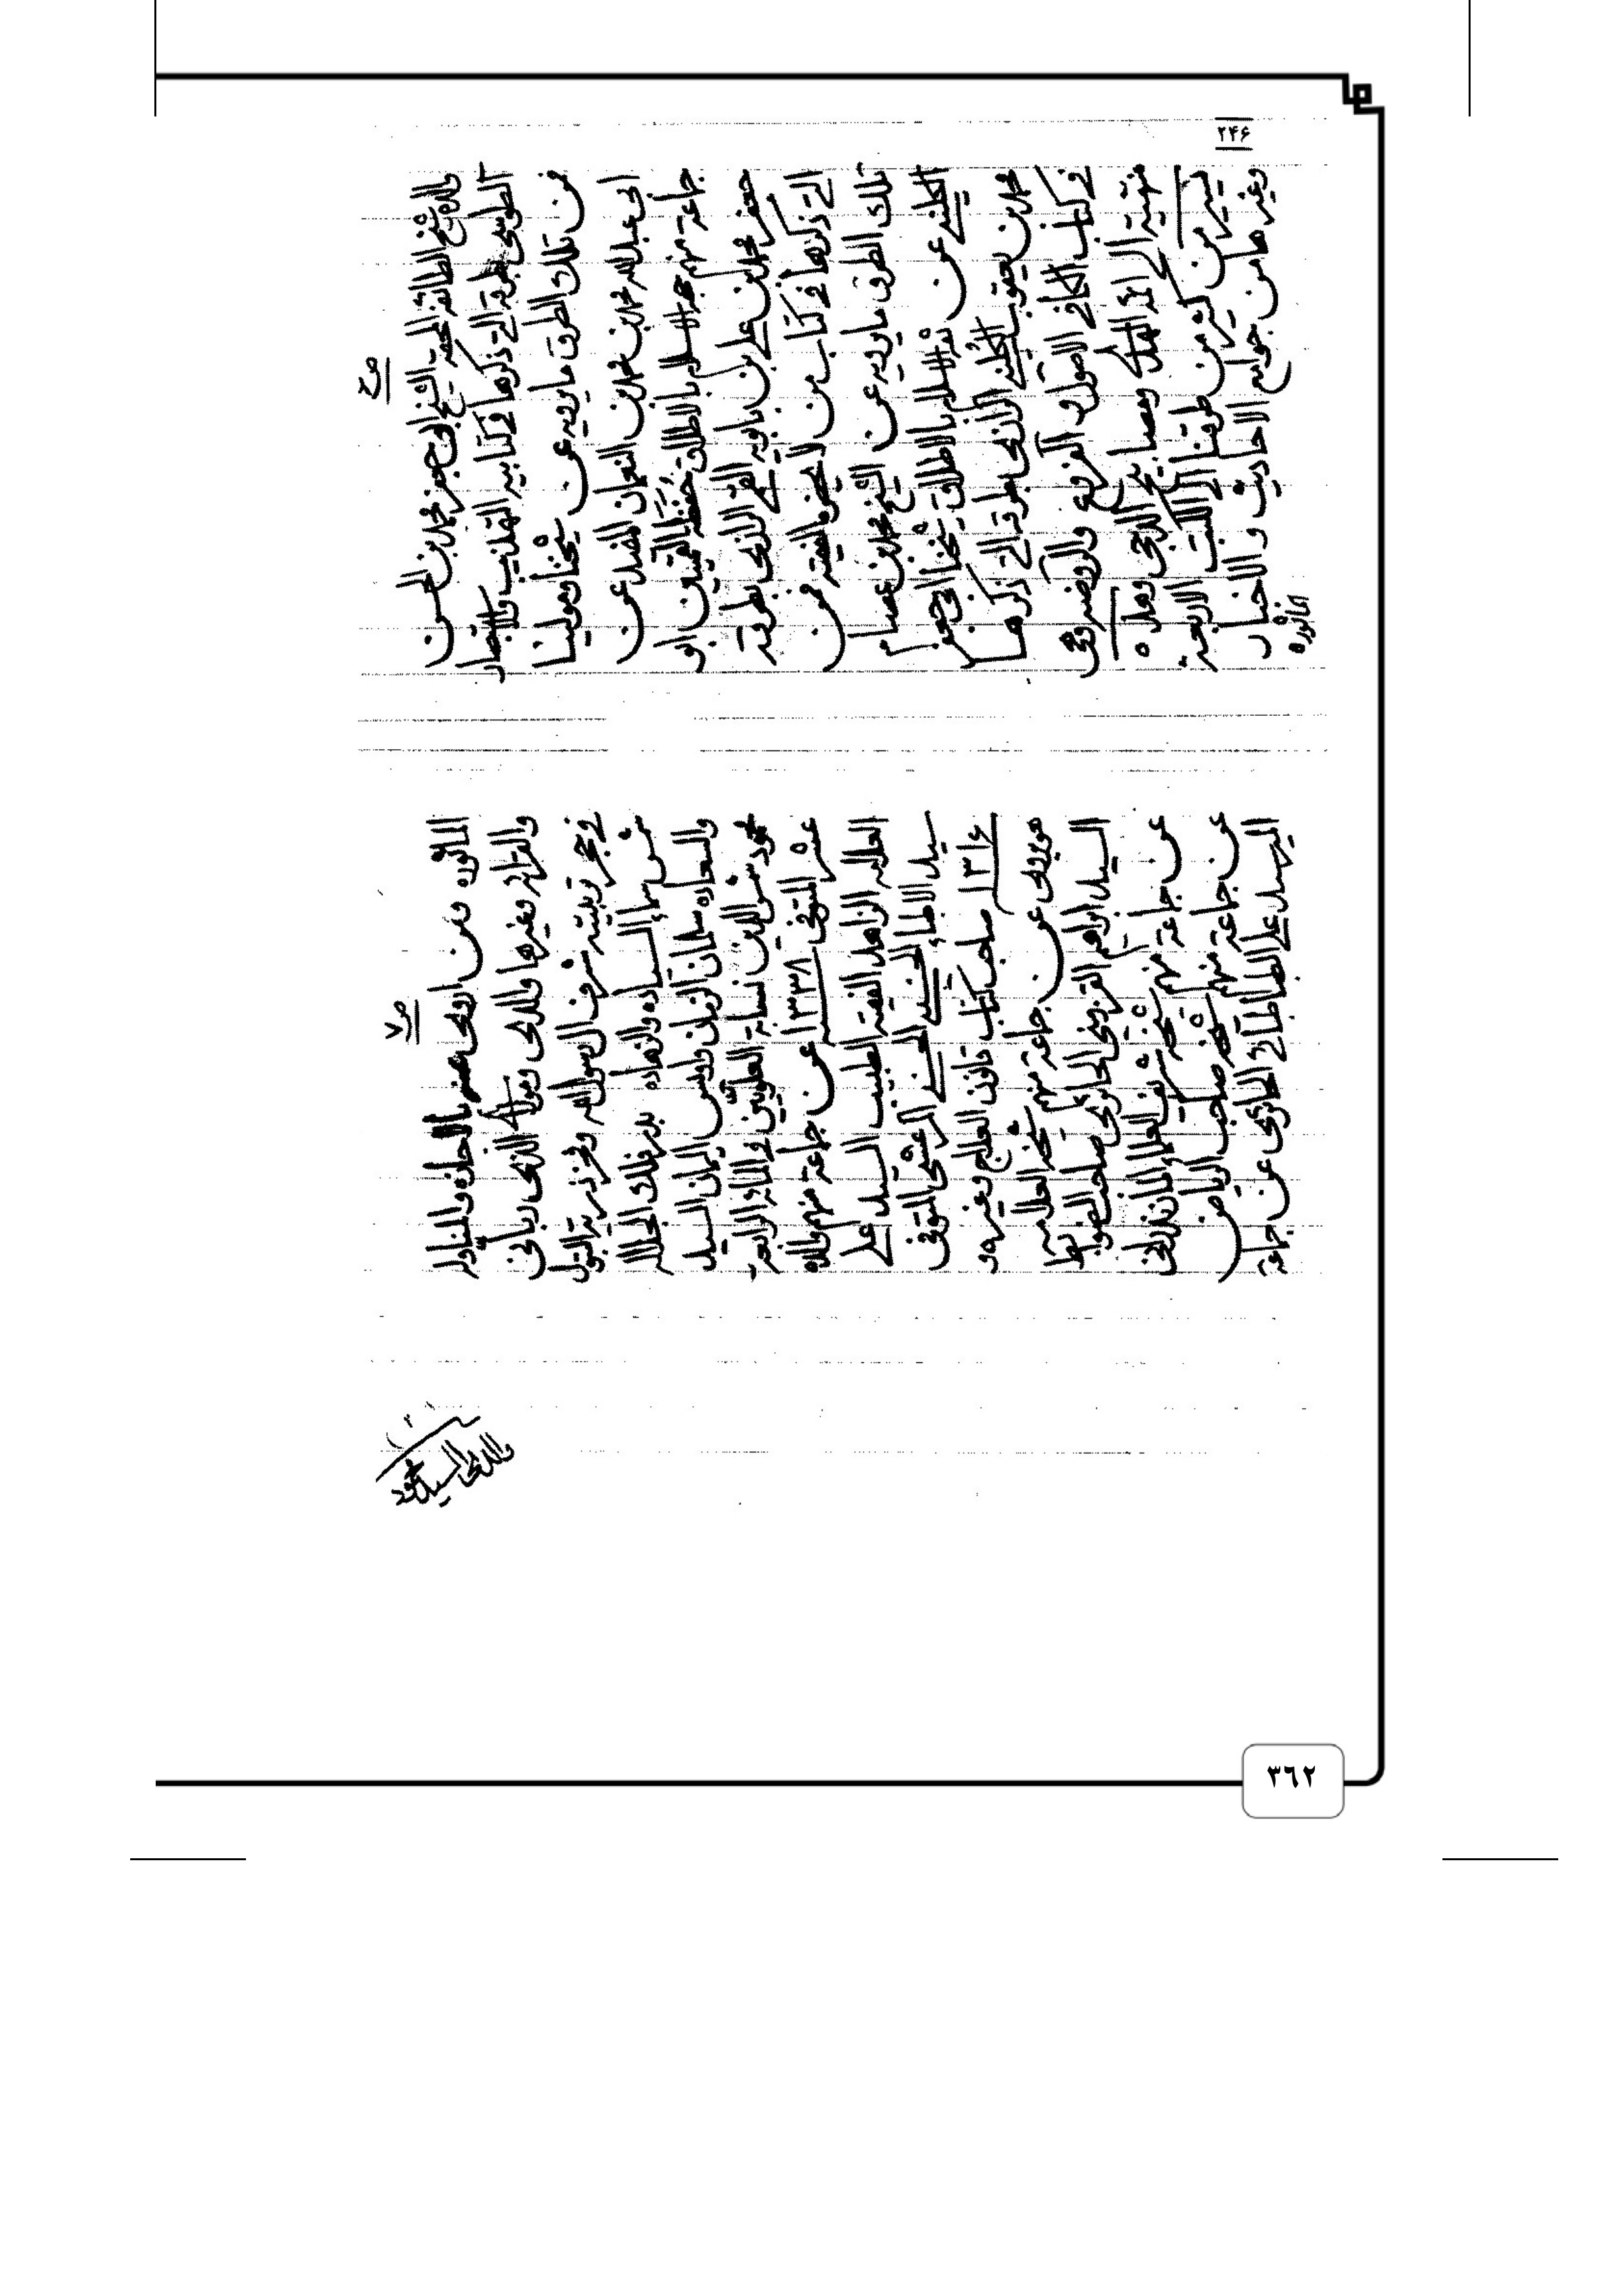 ٢۴۶
ص٦
والده الشيخ الطائفة المحقة الشيخ ابى جعفر محمد بن الحسن
الطوسى بطرقه التي ذكرها في كتابيه التهذيب والاستبصار
من تلك الطرق ما يرويه عن شيخنا ومولينا
ابى عبدالله محمد بن محمد بن النعمان المفيد عن
جماعة منهم حجة الاسلام بالاطلاق القميين ابو
جعفر محمد بن علي بن بابويه القمي الرازى بطرقه
التي ذكرها في كتاب من لا يحضره الفقيه فمن
تلك الطرق ما يرويه عن الشيخ محمد بن عصام
الكليني عن ثقة الاسلام بالاطلاق شيخنا ابى جعفر
محمد بن يعقوب الكليني الرازى بطرقه التي ذكرها
في كتاب الكافي الاصول و الفروع والروضة وهي
منتهية الى ائمة الهدى ومصابيح الدجى وهذه
يسير من كثير من طرقنا الى الكتب الاربعة
وغيرها من جوامع الاحاديث و الاخبار
المأثورة
ص٧
المأثوره ومن اروى عنه بالاجازه والمناولة
والقرائة وغيرها والدى ومولاى الذى ربانى
في حجر تربيته شرف آل رسول الله وفخر ذرية البتول
شمس سماء السياده والزهاده بدر فلك الجلالة
والسعاده سلمان الزمان واويس الزمان السيد
محمود شمس الدين نسابة العلويين في المائة الرابعة
عشره المتوفى ١٣٣٨ عن جماعة منهم والده
العلامة الزاهد الفقيه الطبيب السيد علي
سيد الاطباء الحسيني المرعشى المتوفى
١٣١۶ صاحب كتاب قانون العلاج وغيره و
هو يروى عن جماعة منهم شيخه العلامة
السيد ابراهيم القزوينى الحائرى صاحب الضوابط
عن جماعة منهم شيخه شريف العلماء المازندرانى
عن جماعة منهم شيخه صاحب الرياض
السيد علي الطباطبائي الحائرى عن جماعة
والدى السيد محمود
٣٦٢